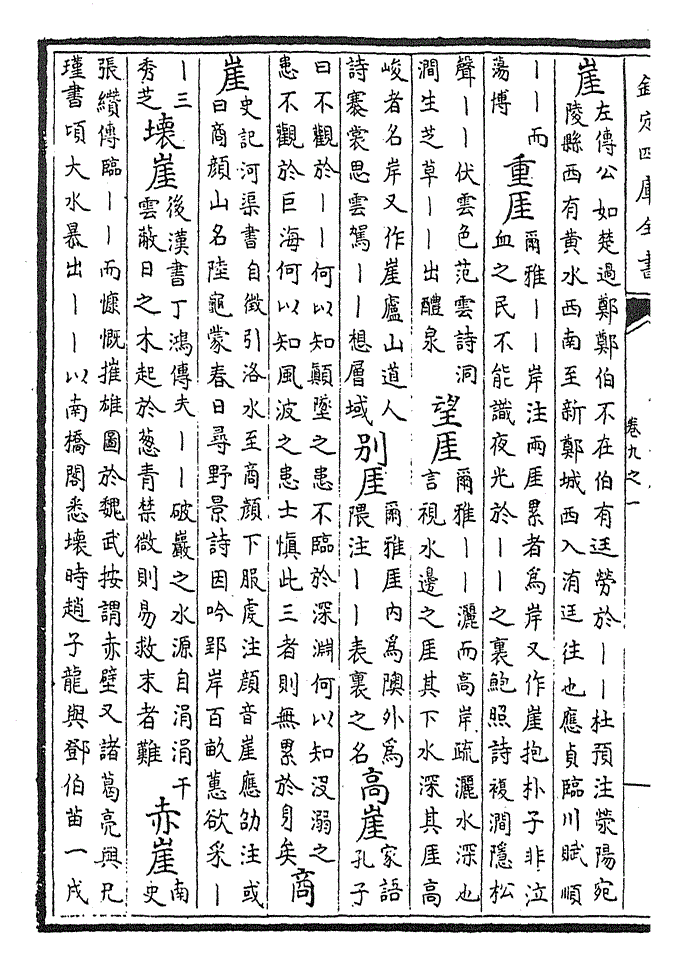 欽定四庫全書
卷九之一
崖
左傳公如楚過鄭鄭伯不在伯有迋勞於丨丨杜預注滎陽宛
陵縣西有黄水西南至新鄭城西入洧迋往也應貞臨川賦順
丨丨而
蕩博
重厓
爾雅丨丨岸注兩厓累者爲岸又作崖抱朴子非泣
血之民不能識夜光於丨丨之裏鮑照詩複澗隱松
聲丨丨伏雲色范雲詩洞
澗生芝草丨丨出醴泉
望厓
爾雅丨丨灑而高岸疏灑水深也
言視水邊之厓其下水深其厓高
峻者名岸又作崖廬山道人
詩褰裳思雲駕丨丨想層域
别厓
爾雅厓内爲隩外爲
隈注丨丨表裏之名
高崖
家語
孔子
曰不觀於丨丨何以知顛墜之患不臨於深淵何以知没溺之
患不觀於巨海何以知風波之患士慎此三者則無累於身矣
商
崖
史記河渠書自徵引洛水至商顔下服虔注顔音崖應劭注或
曰商顔山名陸龜蒙春日尋野景詩因吟郢岸百畝蕙欲采丨
丨三
秀芝
壊崖
後漢書丁鴻傳夫丨丨破巖之水源自涓涓干
雲蔽日之木起於葱青禁微則易救末者難
赤崖
南
史
張纘傳臨丨丨而慷慨摧雄圖於魏武按謂赤壁又諸葛亮與兄
瑾書頃大水暴出丨丨以南橋閣悉壊時趙子龍與鄧伯苗一戍